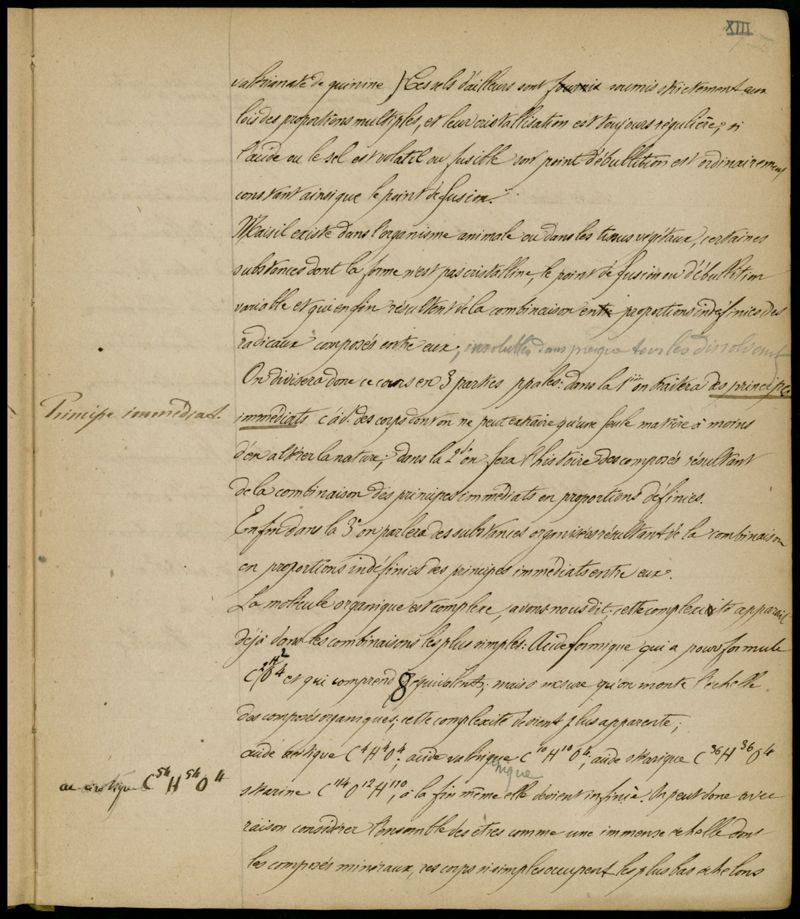 XIII
valérianate de quinine) Ces sels d'ailleurs sont soumis strictement aux
lois des proportions multiples, et leur cristallisation est toujours régulière; si
l'acide ou le sel est volatil ou fusible son point d'ébullition est ordinairement
constant ainsi que le point de fusion.
Mais il existe dans l'organisme animale ou dans les tissus végétaux, certaines
substances dont la forme n'est pas cristalline, le point de fusion ou d'ébullition
variable et qui enfin résultent de la combinaison entre proportions indéfinies des
radicaux composés entre eux, insolubles dans presque tous les dissolvants
On divisera donc ce cours en 3 parties ppales: dans la 1ière on traitera des principes
Principe immédiat.
immédiats c à d. des corps dont on ne peut extraire qu'une seule matière à moins
d'en altérer la nature; dans la 2de on fera l'histoire des composés résultant
de la combinaison des principes immédiats en proportions définies.
Enfin dans la 3e on parlera des substances organisées résultant de la combinaison
en proportions indéfinies des principes immédiats entre eux.
La molécule organique est complexe, avons nous dit; cette complexité apparaît
déjà dans les combinaisons les plus simples: Acide formique qui a pour formule
C²H²O⁴ et qui comprend 8 équivalents; mais à mesure qu'on monte l'échelle
des composés organiques, cette complexité devient plus apparente;
acide acétique C⁴H⁴O⁴; acide valérique C¹⁰H¹⁰O⁴; acide stéarique C³⁶H³⁶O⁴
ac cérotique C⁵⁴H⁵⁴O⁴
stéarine C¹¹⁴O¹²H¹¹⁰; à la fin même elle devient infinie. On peut donc avec
raison considérer l'ensemble des êtres comme une immense échelle dont
les composés minéraux, ces corps si simples occupent les plus bas échelons